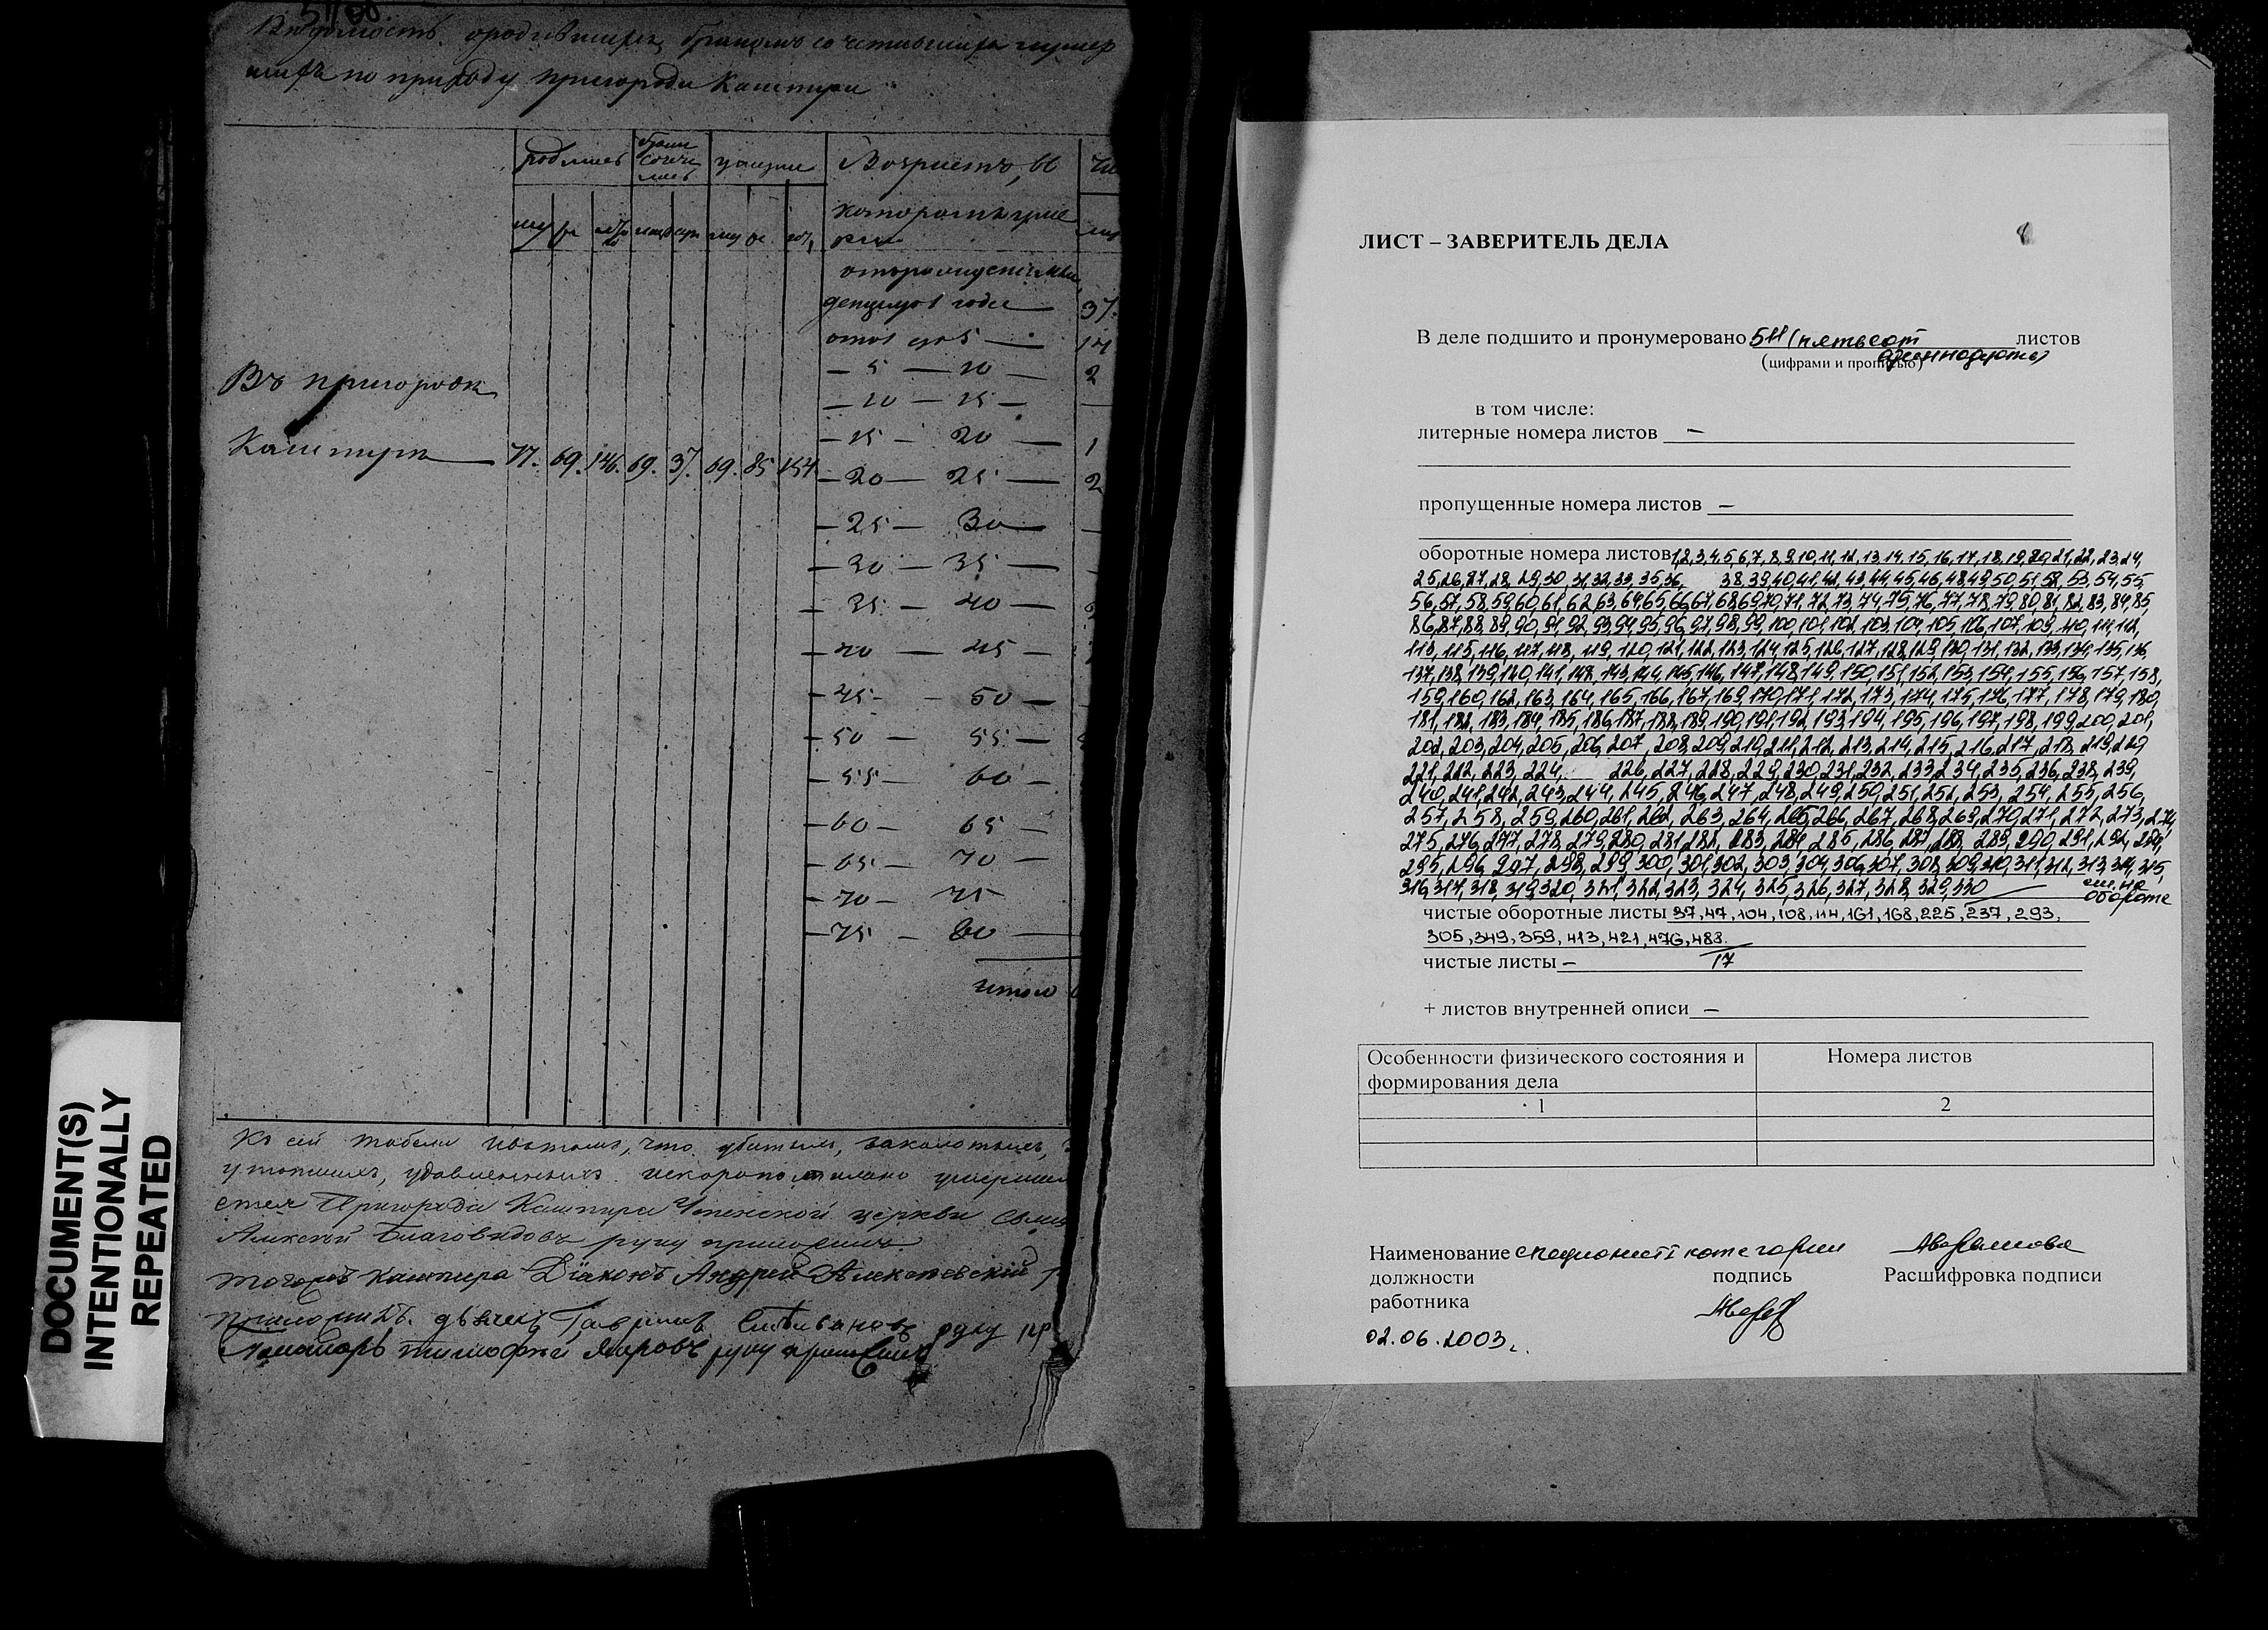 511 об.
Ведомость ородившихся, бракомъ сочетавшихся иумер
шихъ по приходу пригорода Кашпира
родились
браки
сочета
лись
умерли
Возрастъ, въ
котором умер
37.
14
отъ 1 до 5 —
— 5 — 10 — 2
— 10 — 15 — —
— 15 — 20 — 1
— 20 — 25 — 2
— 25 — 30 — —
— 30 — 35 —
— 35 — 40 —
— 40 — 45 —
— 45 — 50 —
— 50 — 55 —
— 55 — 60 —
— 60 — 65 —
— 65 — 70 —
— 70 — 75
— 75 — 80 —
итого
Въ пригородѣ
Кашпирѣ — 77. 69. 146. 69. 37. 69. 85 154
Къ сей табели что убитыхъ, заколотыхъ,
утопшихъ, удавленныхъ искоропостижно умерших
Пригорода Кашпира Успенской церкви Свящ
Алексей Благовидовъ руку приложилъ
тогожъ Кашпира Дїаконъ Андрей Алексеевский
приложилъ. дьячекъ Гавриилъ руку пр
Пономарь тимофей руку приложилъ
DOCUMENT(S)
INTENTIONALLY
REPEATED
ЛИСТ – ЗАВЕРИТЕЛЬ ДЕЛА
8
В деле подшито и пронумеровано 511 (пятьсот листов
одиннадцать)
(цифрами и прописью)
в том числе:
литерные номера листов —
пропущенные номера листов —
оборотные номера листов 1,2,3,4,5,6,7,8,9,10,11,12,13,14,15,16,17,18,19,20,21,22,23,24,
25,26,27,28,29,30,31,32,33,35,36, 38,39,40,41,42,43,44,45,46,48,49,50,51,52,53,54,55,
56,57,58,59,60,61,62,63,64,65,66,67,68,69,70,71,72,73,74,75,76,77,78,79,80,81,82,83,84,85,
86,87,88,89,90,91,92,93,94,95,96,97,98,99,100,101,102,103,104,105,106,107,109,110,111,112,
113,115,116,117,118,119,120,121,122,123,124,125,126,127,128,129,130,131,132,133,134,135,136,
137,138,139,140,141,142,143,144,145,146,147,148,149,150,151,152,153,154,155,156,157,158,
159,160,162,163,164,165,166,167,169,170,171,172,173,174,175,176,177,178,179,180,
181,182,183,184,185,186,187,188,189,190,191,192,193,194,195,196,197,198,199,200,201,
202,203,204,205,206,207,208,209,210,211,212,213,214,215,216,217,218,219,220,
221,222,223,224, 226,227,228,229,230,231,232,233,234,235,236,238,239,
240,241,242,243,244,245,246,247,248,249,250,251,252,253,254,255,256,
257,258,259,260,261,262,263,264,265,266,267,268,269,270,271,272,273,274,
275,276,277,278,279,280,281,282,283,284,285,286,287,288,289,290,291,292,294,
295,296,297,298,299,300,301,302,303,304,306,307,308,309,310,311,312,313,314,315,
316,317,318,319,320,321,322,323,324,325,326,327,328,329,330 — см. на
обороте
чистые оборотные листы 37,47,104,108,114,161,168,225,237,293,
305,349,359,413,421,476,488.
чистые листы — 17
+ листов внутренней описи —
Особенности физического состояния и формирования дела Номера листов
1 2
Наименование специалист I категории Аверашова
должности подпись Расшифровка подписи
работника
02.06.2003г.